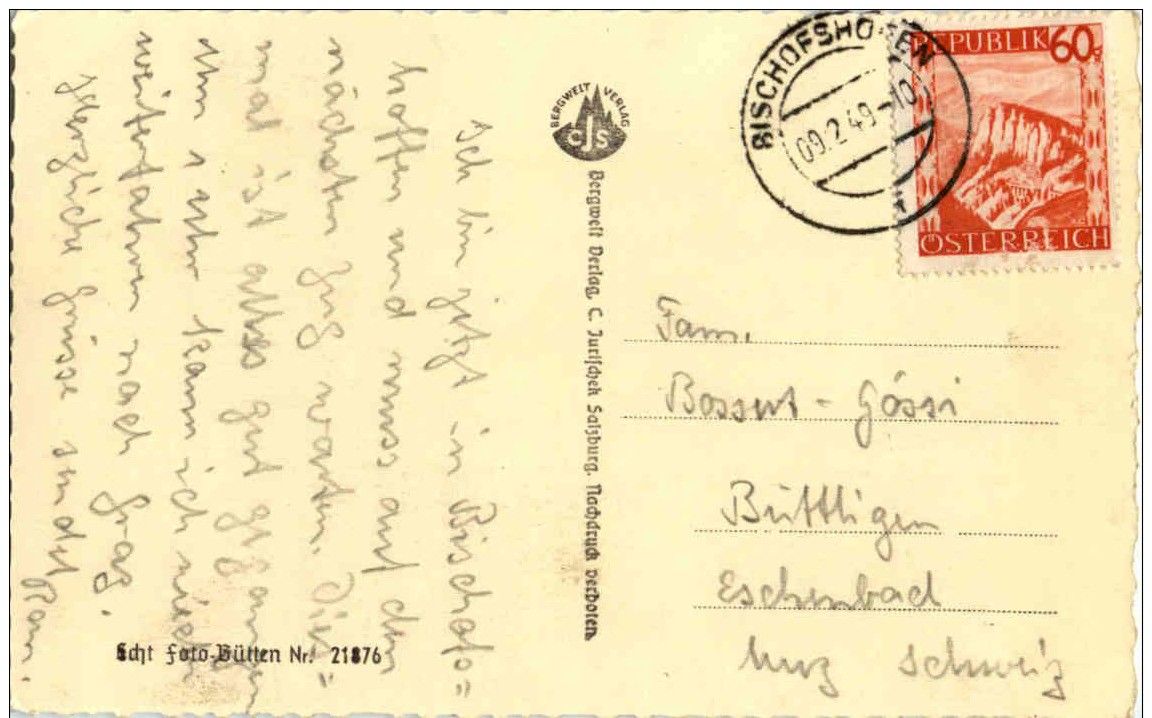 Ich bin jetzt in Bischofs=
hoffen und muss auf den
nächsten Zug warten. Dies=
mal ist alles gut gegangen
Um 1 Uhr kann ich wieder
weiterfahren nach Graz.
Herzliche Grüsse sendet
BERGWELT VERLAG
CJS
Bergwelt Verlag, C. Jurischek Salzburg. Nachdruck verboten.
Echt Foto-Bütten Nr. 21876
BISCHOFSHOFEN
09.2.49-10
REPUBLIK 60
ÖSTERREICH
Fam.
Bossert - Gössi
Büttligen
Eschenbach
Luz Schweiz